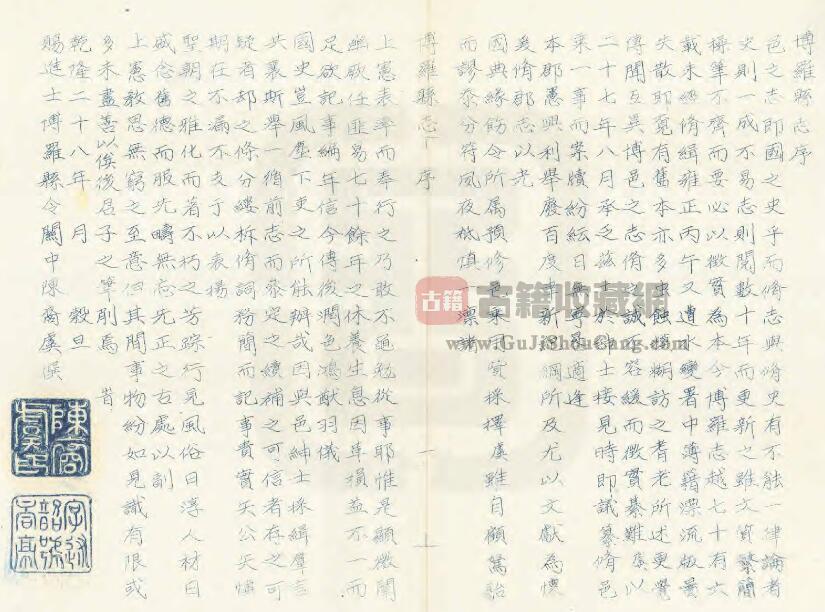 博羅縣志序
邑之志即國之史乎而脩志與脩史有不能一律論者
史則一成不易志則閱數十年而更新之雖文質繁簡
操筆不齊而要必以徵實為本今博羅志越七十有六
載未經脩緝雍正丙午又遭水變署中薄籍漂流版
失散耶寬有舊本亦多虫蝕糊訪之耆老所述更覺
傳聞互異博邑之志脩誠不容緩而徵實綦難虞以
二十七年八月承乏茲土於紳士接見時即議纂脩邑
乘一事而案牘紛紜日無寧晷適逢
本郡憲興利舉廢百度新綱所及尤以文獻為懷
爰脩郡志以光
國典緣飭令所屬預修邑乘採擇虞雖自顧駑駘
而謬忝分符夙夜祗慎凜
博羅縣志 序 一
上憲表率而奉行之乃敢不黽勉從事耶惟是顯微闡
幽厥任匪易七十餘年之休養生息因革損益不一而
足欲記事編年信今傳後潤色鴻猷羽儀
國史豈風塵下吏之所能辦哉因與邑紳士採緝群言
共襄斯舉一循前志而參定之續補之可信者存之可
疑者却之條分縷析脩詞務簡而記事貴實矢公矢慎
期在不漏不支于以表揚
聖朝之雅化而著不朽之芳踪行見風俗日淳人材日
盛念舊德而服先疇無忘先正之古處以副
上憲教思無窮之至意但其間事物紛如見識有限或
多未盡善以俟後君子之筆削焉 旹
乾隆二十八年 月 穀旦
賜進士博羅縣令關中陳裔虞誤
古籍
古籍收藏網
www.GuJiShouCang.com
陳裔虞印